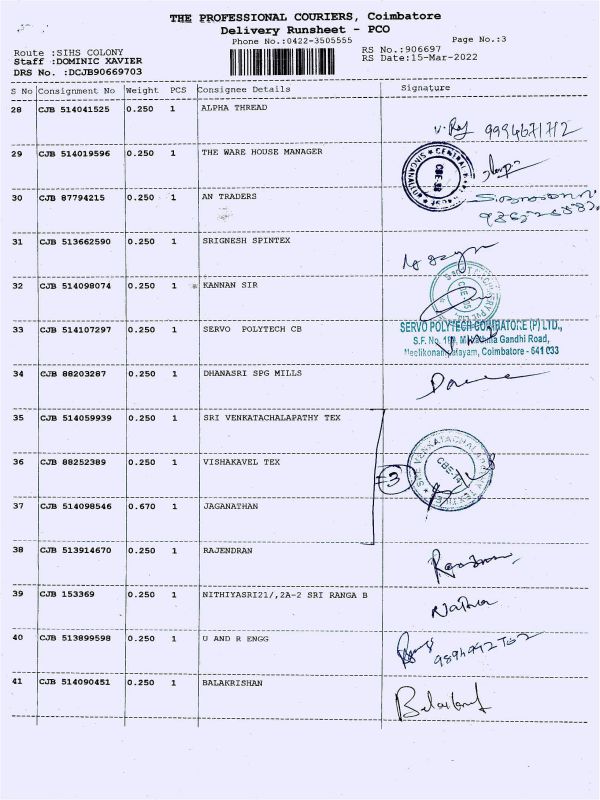 THE PROFESSIONAL COURIERS, Coimbatore
Delivery Runsheet - PCO
Phone No.:0422-3505555
Page No.:3
Route :SIHS COLONY
RS No.:906697
Staff :DOMINIC XAVIER
RS Date:15-Mar-2022
DRS No. :DCJB90669703
S No Consignment No Weight PCS Consignee Details Signature
28 CJB 514041525 0.250 1 ALPHA THREAD
V. Raj 9994671712
29 CJB 514019596 0.250 1 THE WARE HOUSE MANAGER
CBE-98
30 CJB 87794215 0.250 1 AN TRADERS
31 CJB 513662590 0.250 1 SRIGNESH SPINTEX
32 CJB 514098074 0.250 1 KANNAN SIR
33 CJB 514107297 0.250 1 SERVO POLYTECH CB
SERVO POLYTECH COIMBATORE (P) LTD.,
S.F. No. Gandhi Road,
Neelikonampalayam, Coimbatore - 641 033
34 CJB 88203287 0.250 1 DHANASRI SPG MILLS
35 CJB 514059939 0.250 1 SRI VENKATACHALAPATHY TEX
36 CJB 88252389 0.250 1 VISHAKAVEL TEX
3
SRI VENKATACHALAPATHY TEX
CBE-14
37 CJB 514098546 0.670 1 JAGANATHAN
38 CJB 513914670 0.250 1 RAJENDRAN
39 CJB 153369 0.250 1 NITHIYASRI21/,2A-2 SRI RANGA B
40 CJB 513899598 0.250 1 U AND R ENGG
41 CJB 514090451 0.250 1 BALAKRISHAN